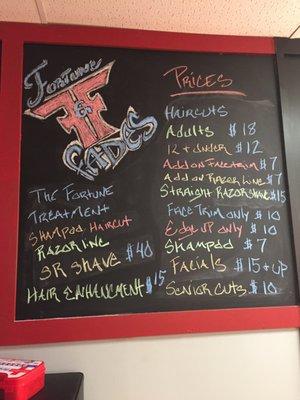 Fortune
F
&
Fades
The Fortune
Treatment
Shampoo Haircut
Razor Line
SR Shave $40
Hair Enhancment $15
Prices
Haircuts
Adults $18
12 & Under $12
Add on Face trim $7
Add on Razor Line $7
Straight Razor Shave $15
Face Trim only $10
Edge up only $10
Shampoo $7
Facials $15 + up
Senior Cuts $10